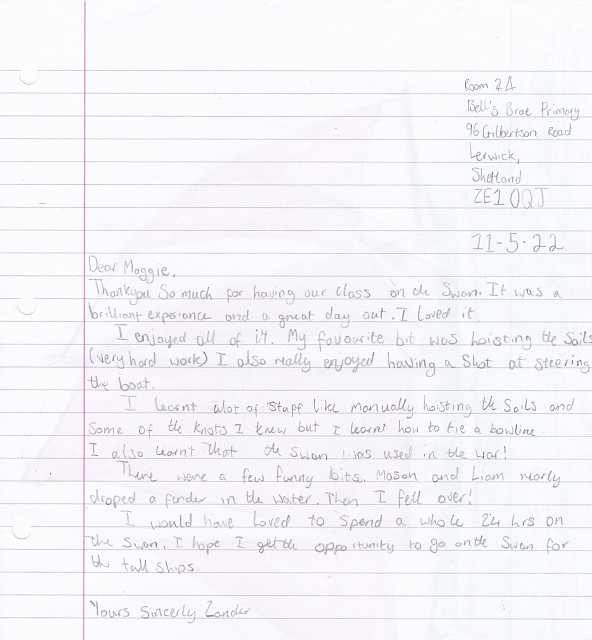 Room 2A
Bell's Brae Primary
96 Gilbertson Road
Lerwick,
Shetland
ZE1 0QJ
11-5-22
Dear Maggie,
Thankyou So much for having our class on the Swan. It was a
brilliant experiance and a great day out. I Loved it
I enjoyed all of it. My favourite bit was hoisting the Sails
(very hard work) I also really enjoyed having a Shot at steering
the boat.
I learnt alot of stuff like manually hoisting the Sails and
Some of the knots I knew but I learnt how to tie a bowline.
I also learnt that the Swan was used in the war!
There were a few funny bits. Mason and Liam nearly
droped a fender in the water. Then I fell over!
I would have Loved to Spend a whole 24 hrs on
the Swan. I hope I get the opportunity to go on the Swan for
the tall Ships.
Yours Sincerly Zander